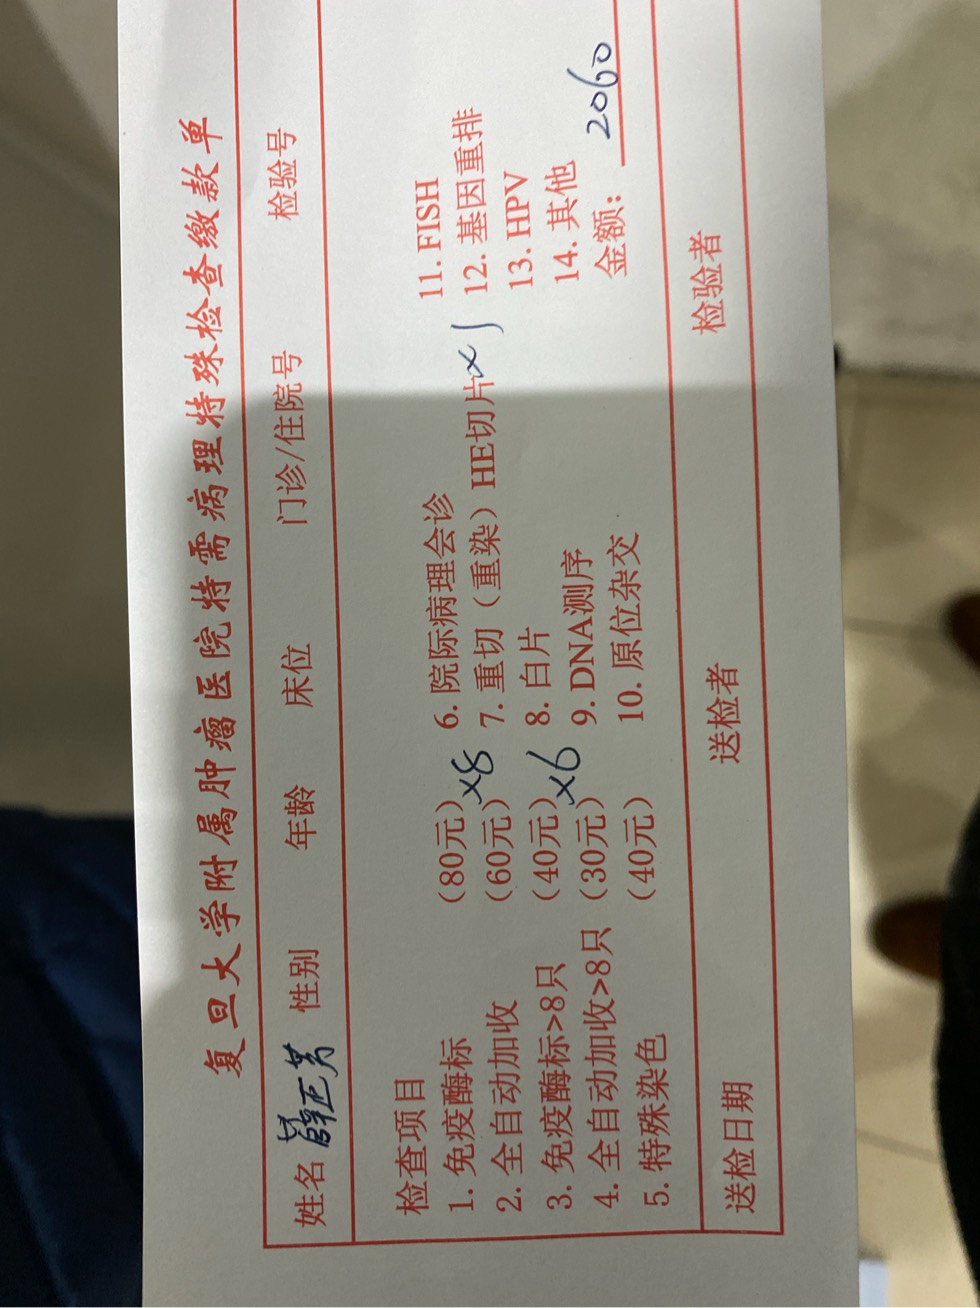 复旦大学附属肿瘤医院特需病理特殊检查缴款单
姓名 薛正芳 性别 年龄 床位 门诊/住院号 检验号
检查项目
1. 免疫酶标 (80元) 6. 院际病理会诊 11. FISH
2. 全自动加收 (60元) ×8 7. 重切（重染）HE切片 ×1 12. 基因重排
3. 免疫酶标>8只 (40元) 8. 白片 13. HPV
4. 全自动加收>8只 (30元) ×6 9. DNA测序 14. 其他
5. 特殊染色 (40元) 10. 原位杂交 金额： 2060
送检日期 送检者 检验者